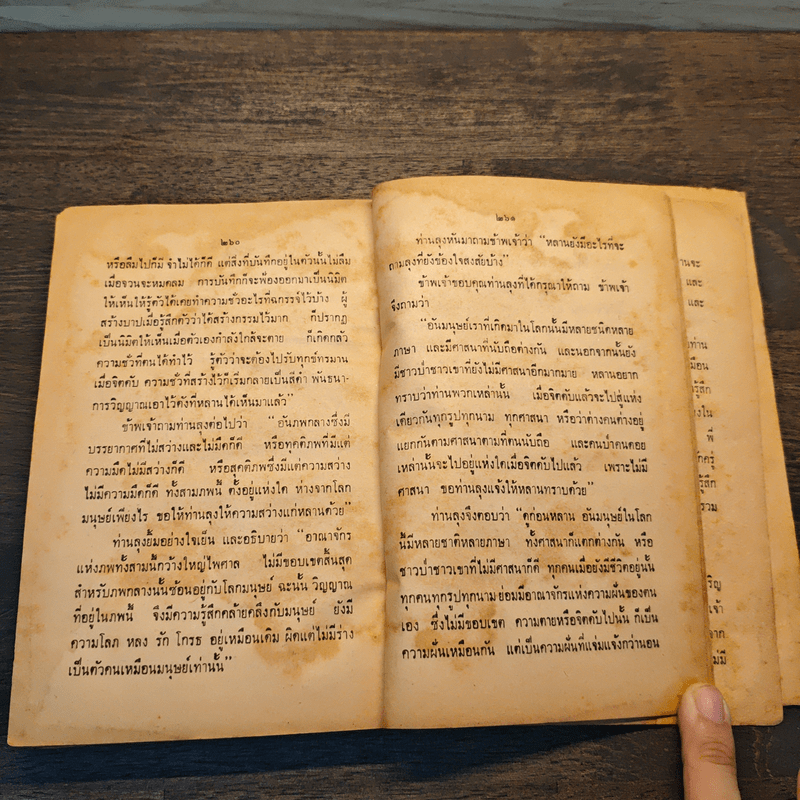 ๒๖๐
หรือลืมไปก็มี จำไม่ได้ก็ดี แต่สิ่งที่บันทึกอยู่ในตัวนั้นไม่ลืม
เมื่อจวนจะหมดลม การบันทึกก็จะฟ้องออกมาเป็นนิมิต
ให้เห็นให้รู้ตัวได้เคยทำความชั่วอะไรที่ฉกรรจ์ไว้บ้าง ผู้
สร้างบาปเมื่อรู้สึกตัวว่าได้สร้างกรรมไว้มาก ก็ปรากฏ
เป็นนิมิตให้เห็นเมื่อตัวเองกำลังใกล้จะตาย ก็เกิดกลัว
ความชั่วที่ตนได้ทำไว้ รู้ตัวว่าจะต้องไปรับทุกข์ทรมาน
เมื่อจิตดับ ความชั่วที่สร้างไว้ก็เริ่มกลายเป็นสีดำ พันธนา-
การวิญญาณเอาไว้ดังที่หลานได้เห็นมาแล้ว”
ข้าพเจ้าถามท่านลุงต่อไปว่า “อันภพกลางซึ่งมี
บรรยากาศที่ไม่สว่างและไม่มืดก็ดี หรือทุคติภพที่มีแต่
ความมืดไม่มีสว่างก็ดี หรือสุคติภพซึ่งมีแต่ความสว่าง
ไม่มีความมืดก็ดี ทั้งสามภพนี้ ตั้งอยู่แห่งใด ห่างจากโลก
มนุษย์เพียงไร ขอให้ท่านลุงให้ความสว่างแก่หลานด้วย”
ท่านลุงยิ้มอย่างใจเย็น และอธิบายว่า “อาณาจักร
แห่งภพทั้งสามนี้กว้างใหญ่ไพศาล ไม่มีขอบเขตสิ้นสุด
สำหรับภพกลางนั้นซ้อนอยู่กับโลกมนุษย์ ฉะนั้น วิญญาณ
ที่อยู่ในภพนี้ จึงมีความรู้สึกคล้ายคลึงกับมนุษย์ ยังมี
ความโลภ หลง รัก โกรธ อยู่เหมือนเดิม ผิดแต่ไม่มีร่าง
เป็นตัวตนเหมือนมนุษย์เท่านั้น”
๒๖๑
ท่านลุงหันมาถามข้าพเจ้าว่า “หลานยังมีอะไรที่จะ
ถามลุงที่ยังข้องใจสงสัยบ้าง”
ข้าพเจ้าขอบคุณท่านลุงที่ได้กรุณาให้ถาม ข้าพเจ้า
จึงถามว่า
“อันมนุษย์เราที่เกิดมาในโลกนั้นมีหลายชนิดหลาย
ภาษา และมีศาสนาที่นับถือต่างกัน และนอกจากนั้นยัง
มีชาวป่าชาวเขาที่ยังไม่มีศาสนาอีกมากมาย หลานอยาก
ทราบว่าท่านพวกเหล่านั้น เมื่อจิตดับแล้วจะไปสู่แห่ง
เดียวกันทุกรูปทุกนาม ทุกศาสนา หรือว่าต่างคนต่างอยู่
แยกกันตามศาสนาตามที่ตนนับถือ และคนป่าคนดอย
เหล่านั้นจะไปอยู่แห่งใดเมื่อจิตดับไปแล้ว เพราะไม่มี
ศาสนา ขอท่านลุงแจ้งให้หลานทราบด้วย”
ท่านลุงจึงตอบว่า “ดูก่อนหลาน อันมนุษย์ในโลก
นี้มีหลายชาติหลายภาษา ทั้งศาสนาก็แตกต่างกัน หรือ
ชาวป่าชาวเขาที่ไม่มีศาสนาก็ดี ทุกคนเมื่อยังมีชีวิตอยู่นั้น
ทุกคนทุกรูปทุกนามย่อมมีอาณาจักรแห่งความฝันของตน
เอง ซึ่งไม่มีขอบเขต ความตายหรือจิตดับไปนั้น ก็เป็น
ความฝันเหมือนกัน แต่เป็นความฝันที่แจ่มแจ้งกว่านอน